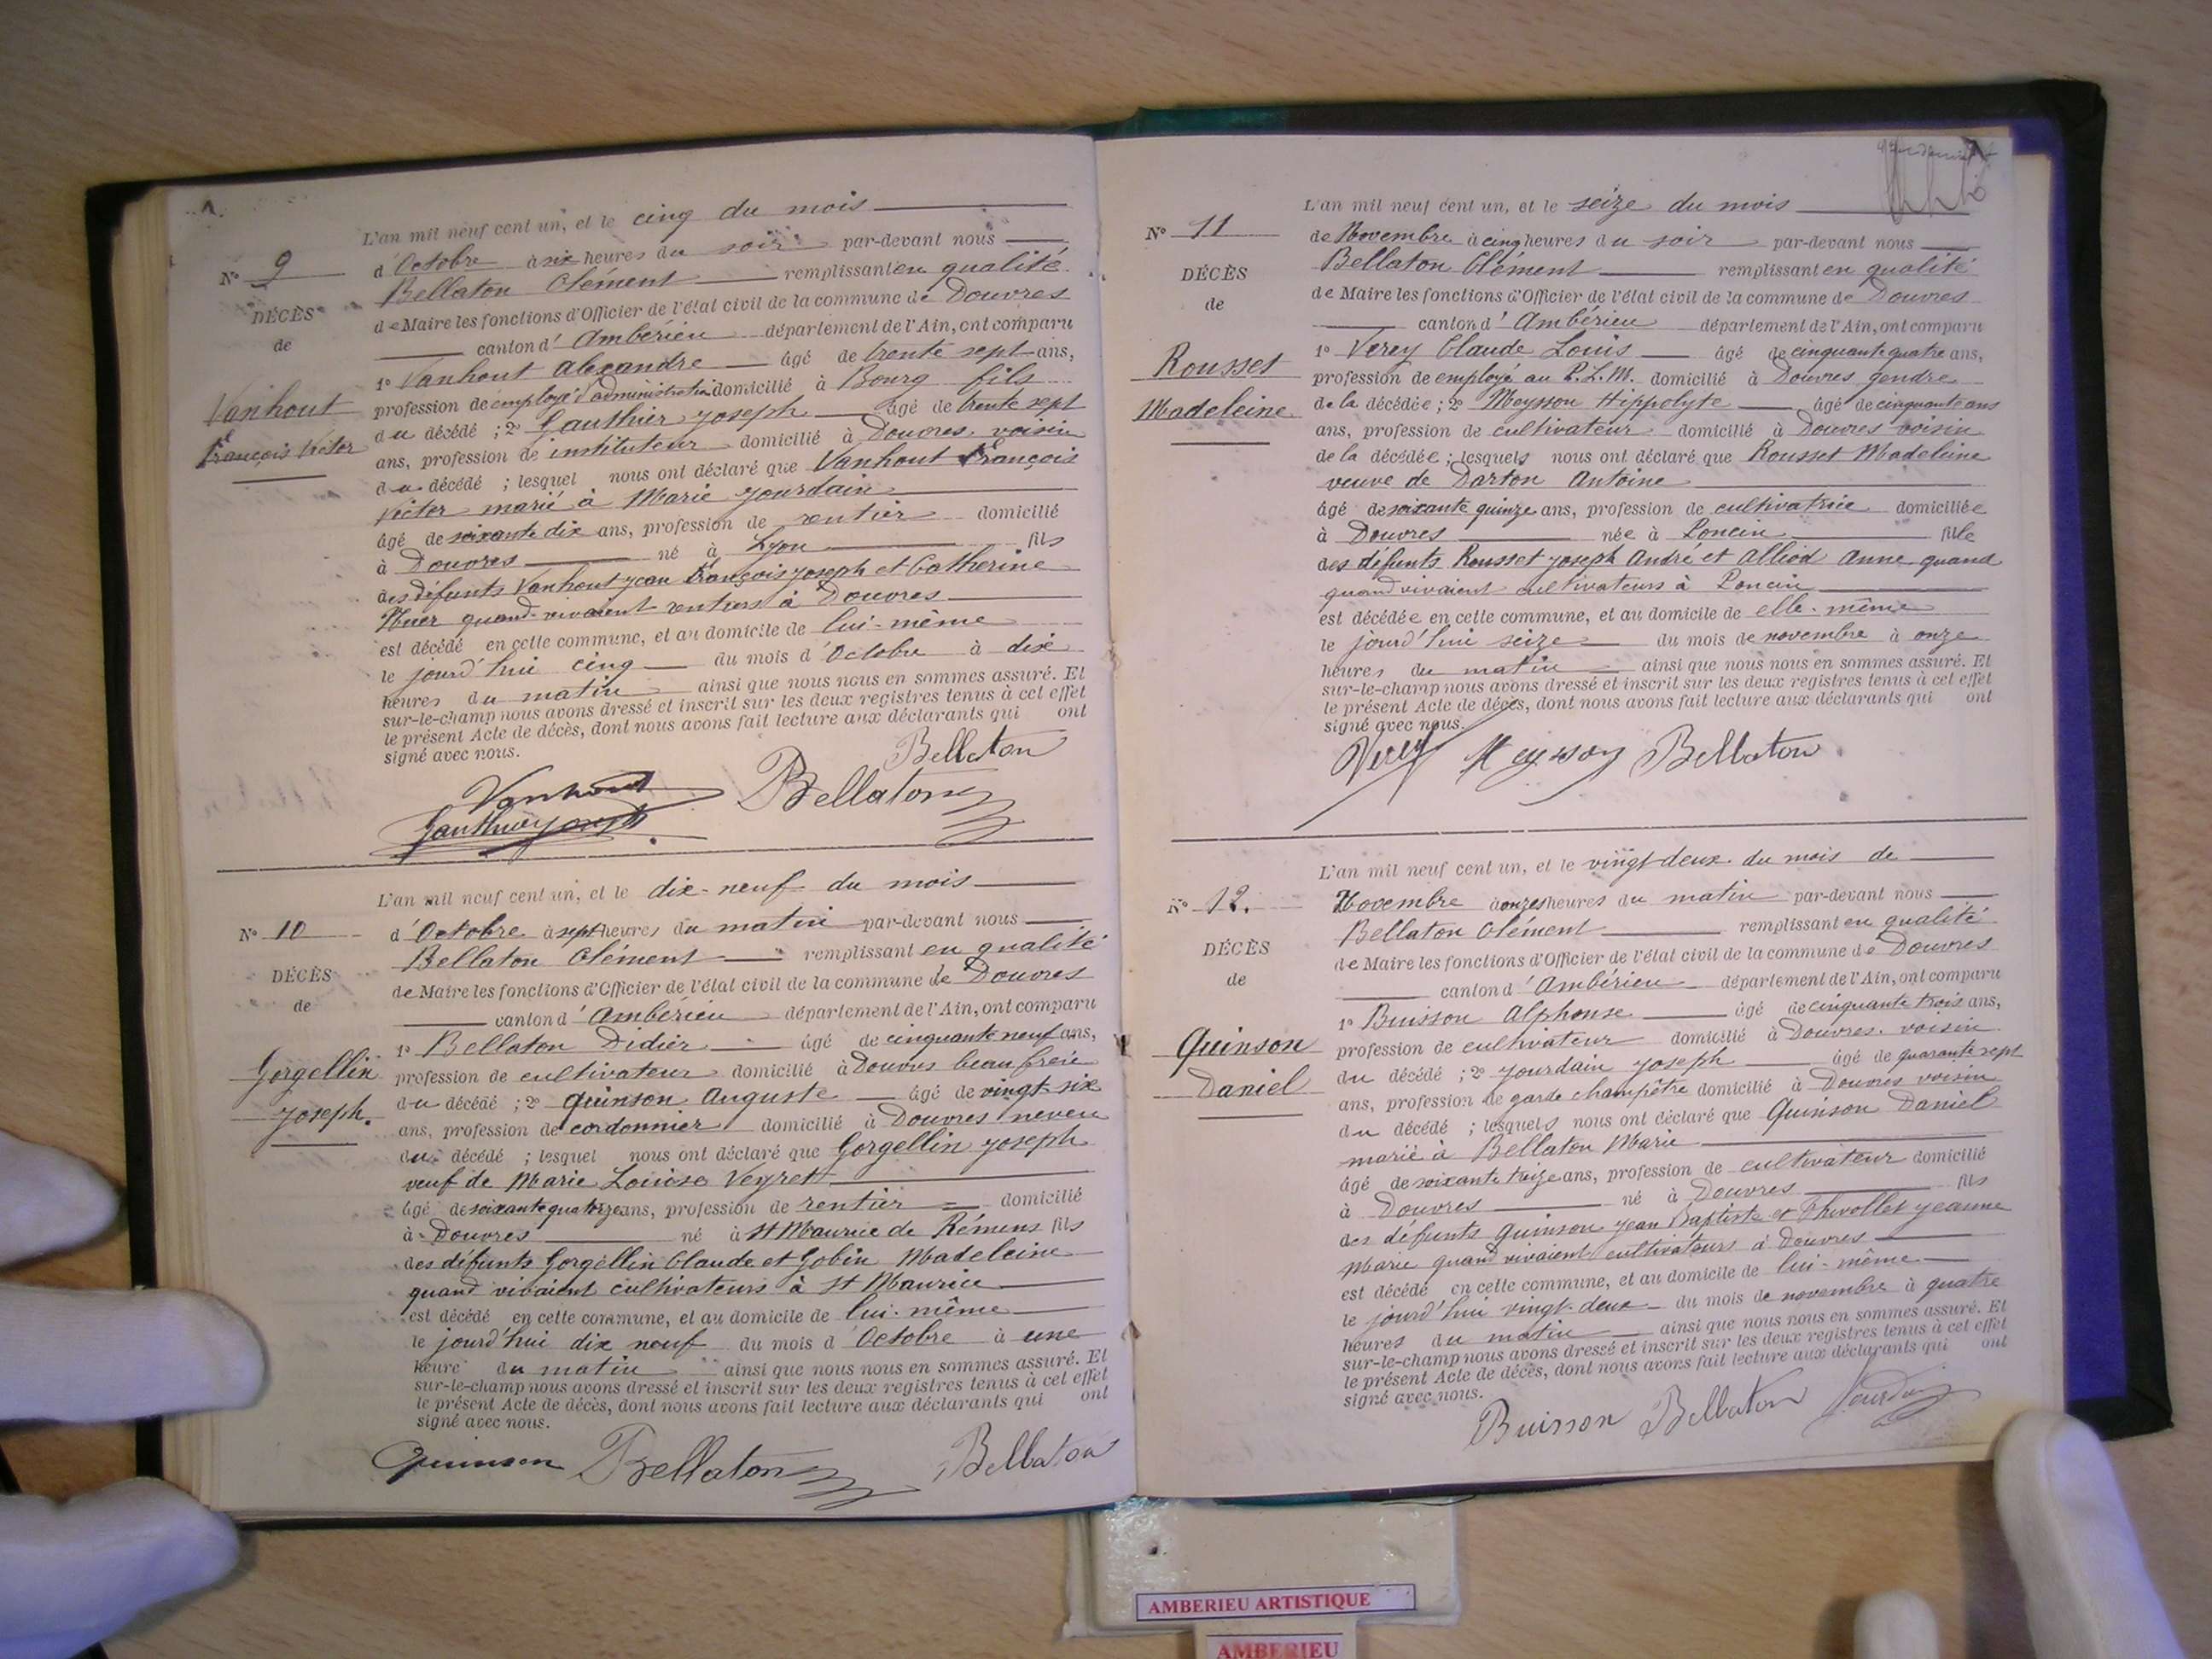 L'an mil neuf cent un, et le cinq du mois
N° 9
d'Octobre à six heures du soir par-devant nous
Bellaton Clément remplissant en qualité
DÉCÈS
de Maire les fonctions d'Officier de l'état civil de la commune de Douvres
de
canton d'Ambérieu département de l'Ain, ont comparu
1° Vanhout Alexandre âgé de trente sept ans,
Vanhout
profession de employé d'administration domicilié à Bourg fils
du décédé ; 2° Gauthier Joseph âgé de trente sept
François Victor
ans, profession de instituteur domicilié à Douvres voisin
du décédé ; lesquel nous ont déclaré que Vanhout François
Victor marié à Marie Jourdain
âgé de soixante dix ans, profession de rentier domicilié
à Douvres né à Lyon fils
des défunts Vanhout Jean François Joseph et Catherine
quand vivaient rentiers à Douvres
est décédé en cette commune, et au domicile de lui-même
le jourd'hui cinq du mois d'Octobre à dix
heures du matin ainsi que nous nous en sommes assuré. Et
sur-le-champ nous avons dressé et inscrit sur les deux registres tenus à cet effet
le présent Acte de décès, dont nous avons fait lecture aux déclarants qui ont
signé avec nous.
Bellaton
Vanhout Bellaton
Gauthier Joseph
L'an mil neuf cent un, et le dix-neuf du mois
N° 10
d'Octobre à sept heures du matin par-devant nous
Bellaton Clément remplissant en qualité
DÉCÈS
de Maire les fonctions d'Officier de l'état civil de la commune de Douvres
de
canton d'Ambérieu département de l'Ain, ont comparu
1° Bellaton Didier âgé de cinquante neuf ans,
Gorgellin
profession de cultivateur domicilié à Douvres beau frère
du décédé ; 2° Quinson Auguste âgé de vingt-six
Joseph.
ans, profession de cordonnier domicilié à Douvres neveu
du décédé ; lesquel nous ont déclaré que Gorgellin Joseph
veuf de Marie Louise Veyret
âgé de soixante quatorze ans, profession de rentier domicilié
à Douvres né à St Maurice de Rémens fils
des défunts Gorgellin Claude et Gobin Madeleine
quand vivaient cultivateurs à St Maurice
est décédé en cette commune, et au domicile de lui-même
le jourd'hui dix neuf du mois d'Octobre à une
heure du matin ainsi que nous nous en sommes assuré. Et
sur-le-champ nous avons dressé et inscrit sur les deux registres tenus à cet effet
le présent Acte de décès, dont nous avons fait lecture aux déclarants qui ont
signé avec nous.
Quinson Bellaton Bellaton
L'an mil neuf cent un, et le seize du mois
N° 11
de Novembre à cinq heures du soir par-devant nous
Bellaton Clément remplissant en qualité
DÉCÈS
de Maire les fonctions d'Officier de l'état civil de la commune de Douvres
de
canton d'Ambérieu département de l'Ain, ont comparu
1° Verey Claude Louis âgé de cinquante quatre ans,
Rousset
profession de employé au P.L.M. domicilié à Douvres gendre
Madeleine
de la décédée ; 2° Meysson Hippolyte âgé de cinquante ans
ans, profession de cultivateur domicilié à Douvres voisin
de la décédée ; lesquels nous ont déclaré que Rousset Madeleine
veuve de Darton Antoine
âgé de soixante quinze ans, profession de cultivatrice domiciliée
à Douvres née à Poncin fille
des défunts Rousset Joseph André et Alliod Anne quand
quand vivaient cultivateurs à Poncin
est décédée en cette commune, et au domicile de elle-même
le jourd'hui seize du mois de novembre à onze
heures du matin ainsi que nous nous en sommes assuré. Et
sur-le-champ nous avons dressé et inscrit sur les deux registres tenus à cet effet
le présent Acte de décès, dont nous avons fait lecture aux déclarants qui ont
signé avec nous.
Verey Meysson Bellaton
L'an mil neuf cent un, et le vingt-deux du mois de
N° 12.
Novembre à onze heures du matin par-devant nous
Bellaton Clément remplissant en qualité
DÉCÈS
de Maire les fonctions d'Officier de l'état civil de la commune de Douvres
de
canton d'Ambérieu département de l'Ain, ont comparu
1° Buisson Alphonse âgé de cinquante trois ans,
Quinson
profession de cultivateur domicilié à Douvres voisin
du décédé ; 2° Jourdain Joseph âgé de quarante sept
Daniel
ans, profession de garde champêtre domicilié à Douvres voisin
du décédé ; lesquels nous ont déclaré que Quinson Daniel
marié à Bellaton Marie
âgé de soixante treize ans, profession de cultivateur domicilié
à Douvres né à Douvres fils
des défunts Quinson Jean Baptiste et Thevollet Jeanne
Marie quand vivaient cultivateurs à Douvres
est décédé en cette commune, et au domicile de lui-même
le jourd'hui vingt-deux du mois de novembre à quatre
heures du matin ainsi que nous nous en sommes assuré. Et
sur-le-champ nous avons dressé et inscrit sur les deux registres tenus à cet effet
le présent Acte de décès, dont nous avons fait lecture aux déclarants qui ont
signé avec nous.
Buisson Bellaton Jourdain
AMBERIEU ARTISTIQUE
AMBERIEU